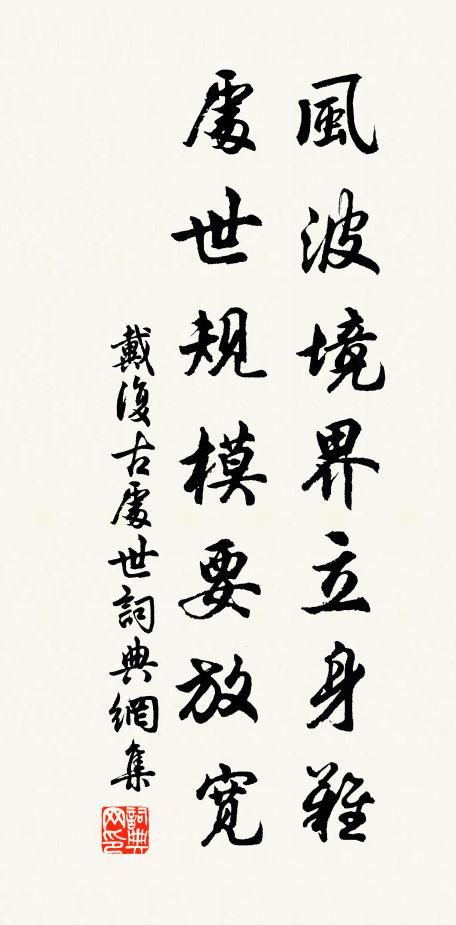 風波境界立身難
處世規模要放寬
戴復古處世詞典網集
詞典网印